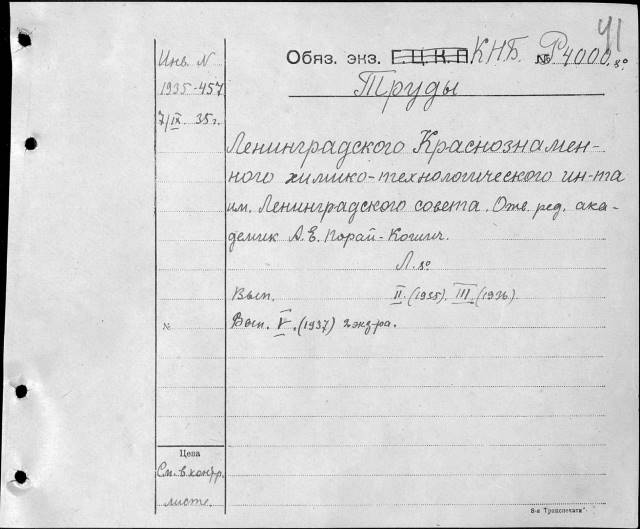 41
Обяз. экз. Г.Ц.К.П КНБ. № P4000.8°
Труды
Инв. N
1935-457
7/IX. 35 г.
Ленинградского Краснознамен-
ного химико-технологического ин-та
им. Ленинградского совета. Отв. ред. ака-
демик А. Е. Порай-Кошиц.
Л. 8°
Вып. II. (1935). III. (1936).
№
Вып. V. (1937) 2 экз-ра.
Цена
См. в контр.
листе.
8-я Транспечати